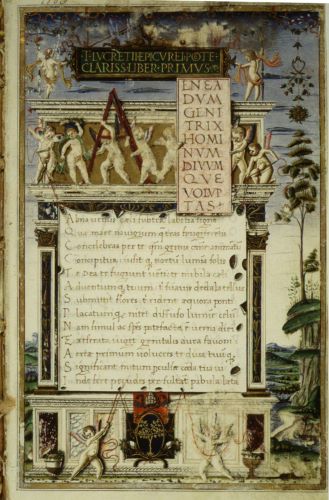 ·T·LVCRETII EPICVREI POETE
CLARISS·LIBER·PRIMVS·
A
ENEA
DVM
GENI
TRIX
HOMI
NVM
DIVVM
QVE
VOLVP
TAS·
Alma venus celi subter labentia signa
Quae mare navigerum quae terras frugiferentis
Concelebras per te quoniam genus omne animantum
Concipitur visitque exortum lumina solis
Te Dea te fugiunt venti te nubila caeli
Adventumque tuum tibi suavis dedala tellus
Submittit flores tibi rident aequora ponti
Placatumque nitet diffuso lumine celum
Nam simul ac species patefacta est verna diei
Et reserata viget genitalis aura favoni
Aeriae primum volucres te diva tuumque
Significant initum perculse corda tua vi
Inde fere pecudes persultant pabula laeta